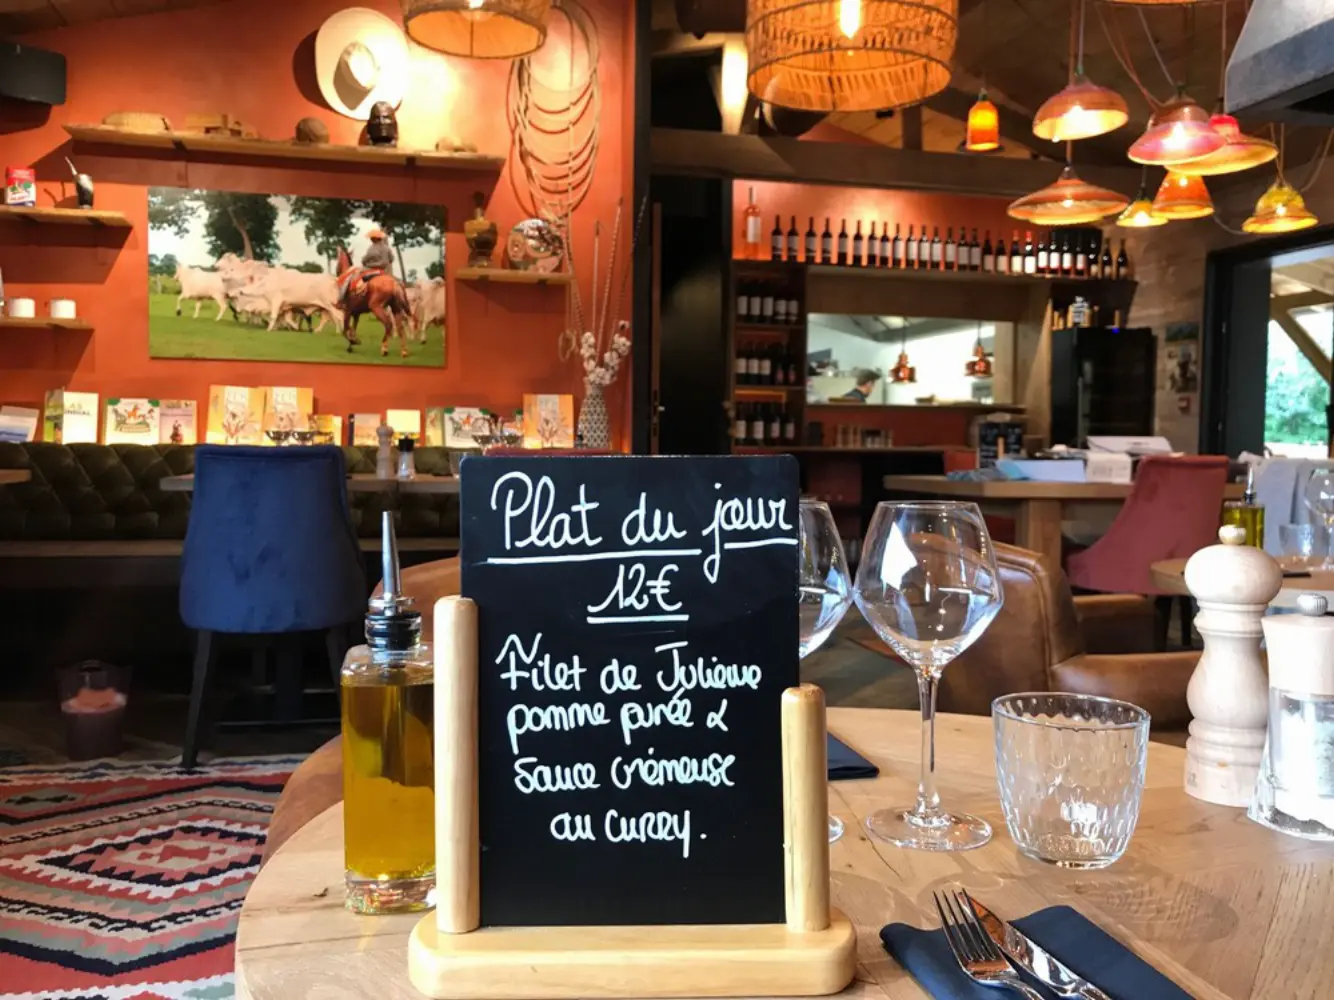 Plat du jour
12€
Filet de Julienne
pomme purée &
Sauce crémeuse
au curry.